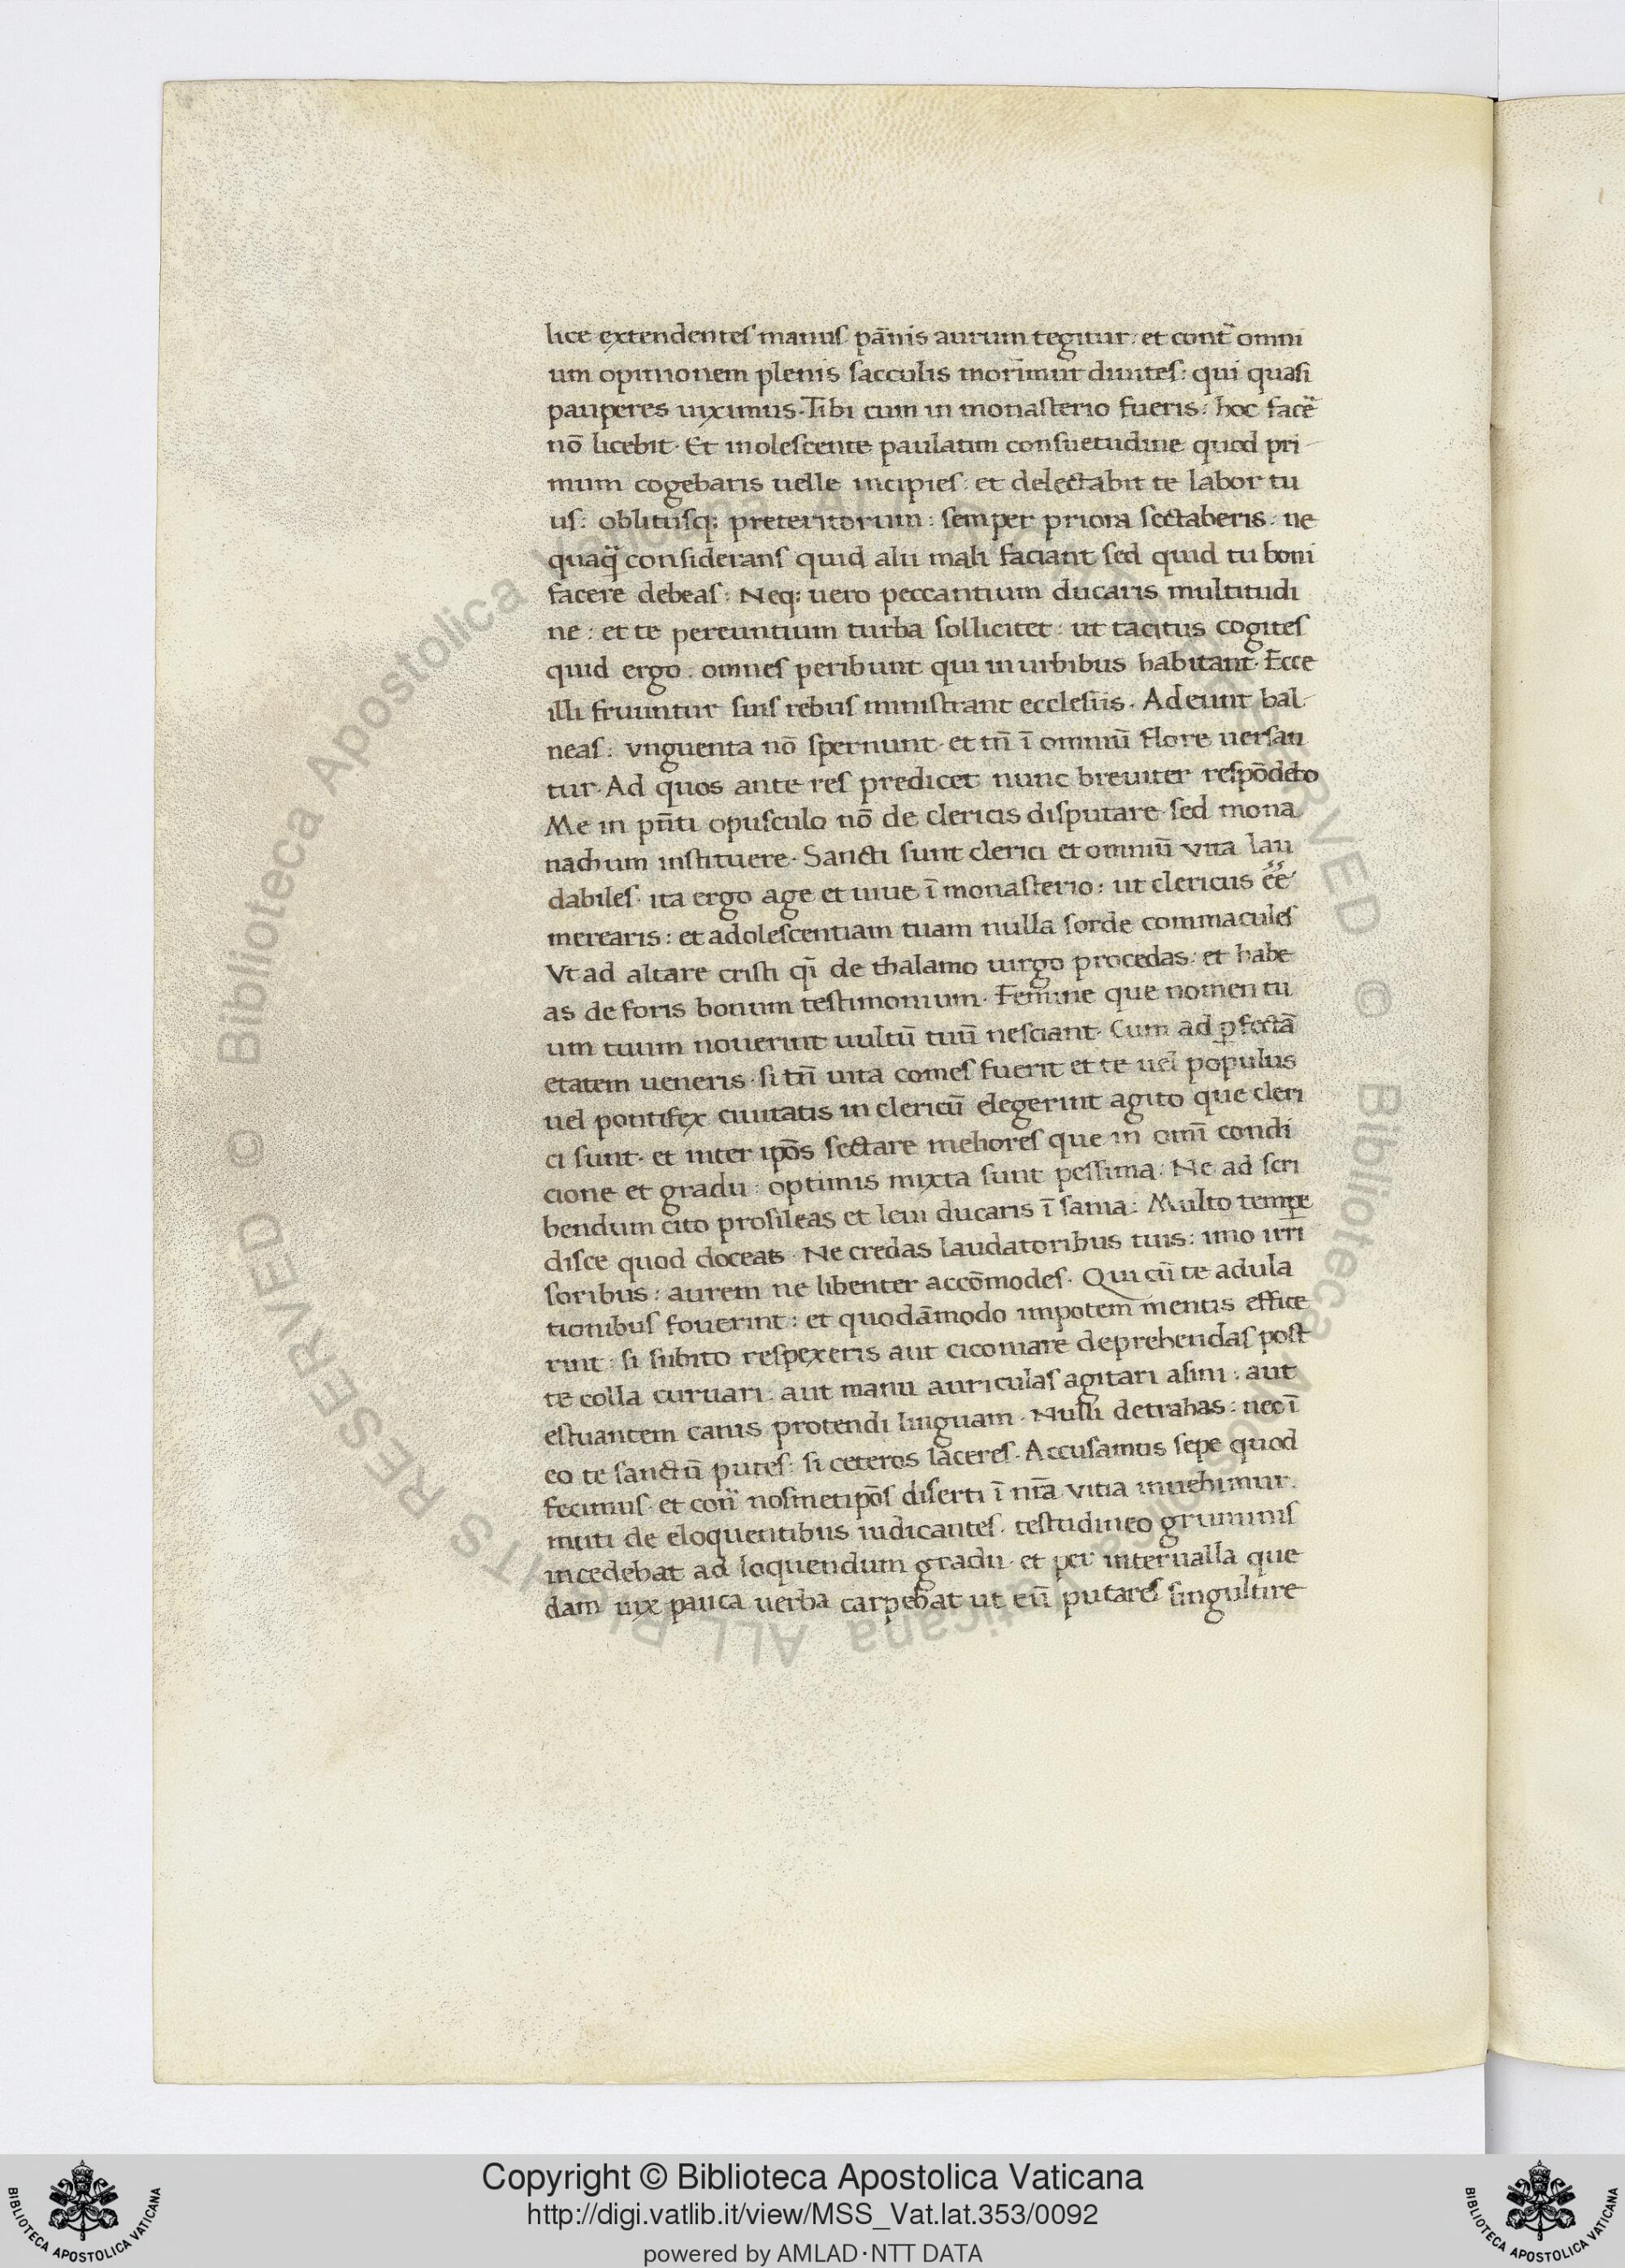 lice extendentes manus pānis aurum tegitur: et cont̃ omni
um opinionem plenis sacculis morimur diuites: qui quasi
pauperes uiximus. Tibi cum in monasterio fueris: hoc facẽ
nō licebit. Et inolescente paulatim consuetudine quod pri-
mum cogebaris uelle incipies: et delectabit te labor tu
us: oblitusq; preteritorum: semper priora sectaberis: ne
quaq̃ considerans quid alii mali faciant sed quid tu boni
facere debeas: Neq; uero peccantium ducaris multitudi
ne: et te pereuntium turba sollicitet: ut tacitus cogites
quid ergo: omnes peribunt qui in urbibus habitant. Ecce
illi fruuntur suis rebus ministrant ecclesiis. Adeunt bal-
neas: vnguenta nō spernunt. et tn̄ ī omniū flore uersan
tur. Ad quos ante res predicet nunc breuiter respōdebo
Me in pn̄ti opusculo nō de clericis disputare sed mona
nachum instituere. Sancti sunt clerici et omniū vita lau
dabiles. ita ergo age et uiue ī monasterio: ut clericus ẽẽ
merearis: et adolescentiam tuam nulla sorde commacules
Vt ad altare cristi qī de thalamo uirgo procedas: et habe
as de foris bonum testimonium. Femine que nomen tu
um tuum nouerint uultū tuū nesciant. Cum ad ꝑfectā
etatem ueneris. si tn̄ uita comes fuerit et te uel populus
uel pontifex ciuitatis in clericū elegerint agito que cleri
ci sunt. et inter ipōs sectare meliores que in omī condi
cione et gradu: optimis mixta sunt pessima: Ne ad scri
bendum cito prosileas et leui ducaris ī sania: Multo tempe
disce quod doceas. Ne credas laudatoribus tuis: imo irri
soribus: aurem ne libenter accōmodes. Qui cū te adula
tionibus fouerint: et quodāmodo impotem mentis effice
rint: si subito respexeris aut ciconiare deprehendas post
te colla curuari: aut manu auriculas agitari asini: aut
estuantem canis protendi linguam. Nulli detrahas: nec ī
eo te sanctū putes: si ceteros laceres. Accusamus sepe quod
fecimus. et con̄ nosmetipōs diserti ī nr̄a vitia inuehimur.
muti de eloquentibus iudicantes. testudineo grunnis
incedebat ad loquendum gradu. et per interualla que
dam uix pauca uerba carpebat ut eū putares singultire
Copyright © Biblioteca Apostolica Vaticana
http://digi.vatlib.it/view/MSS_Vat.lat.353/0092
powered by AMLAD·NTT DATA